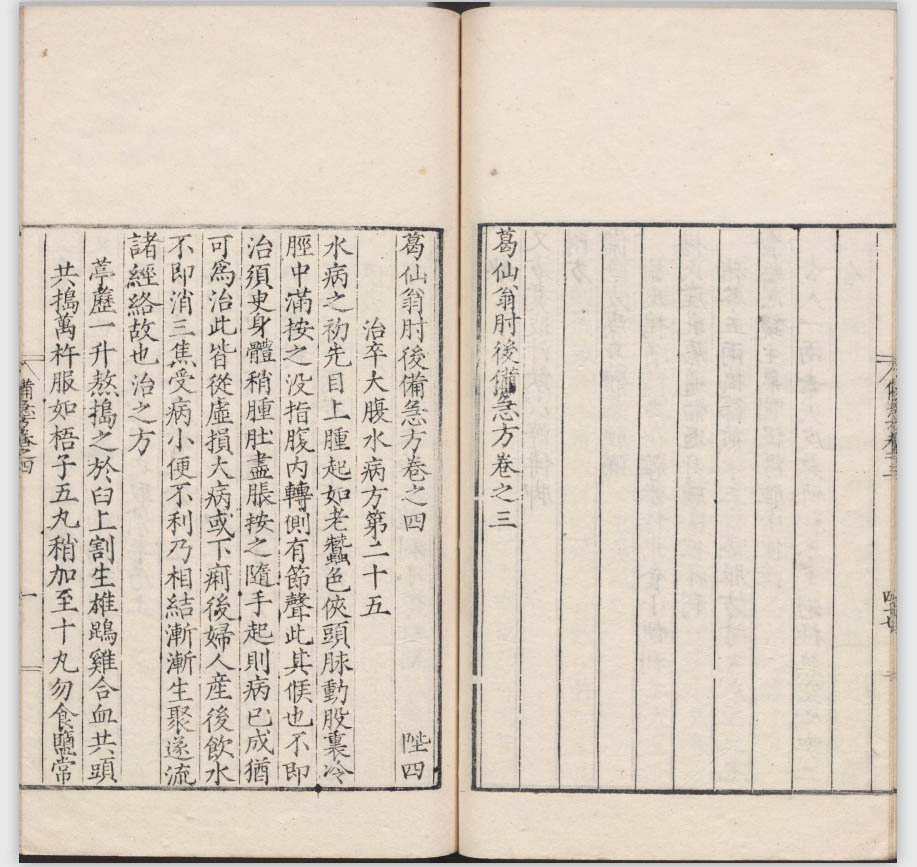 葛仙翁肘後備急方卷之三
葛仙翁肘後備急方卷之四 陛四
治卒大腹水病方第二十五
水病之初先目上腫起如老蠶色俠頭脉動股裏冷
脛中滿按之没指腹内轉側有節聲此其候也不即
治須臾身體稍腫肚盡脹按之隨手起則病已成猶
可為治此皆從虛損大病或下痢後婦人産後飲水
不即消三焦受病小便不利乃相結漸漸生聚遂流
諸經絡故也治之方
葶藶一升熬搗之於臼上割生雄鵾雞合血共頭
共搗萬杵服如梧子五丸稍加至十丸勿食鹽常
備急方卷之四
一